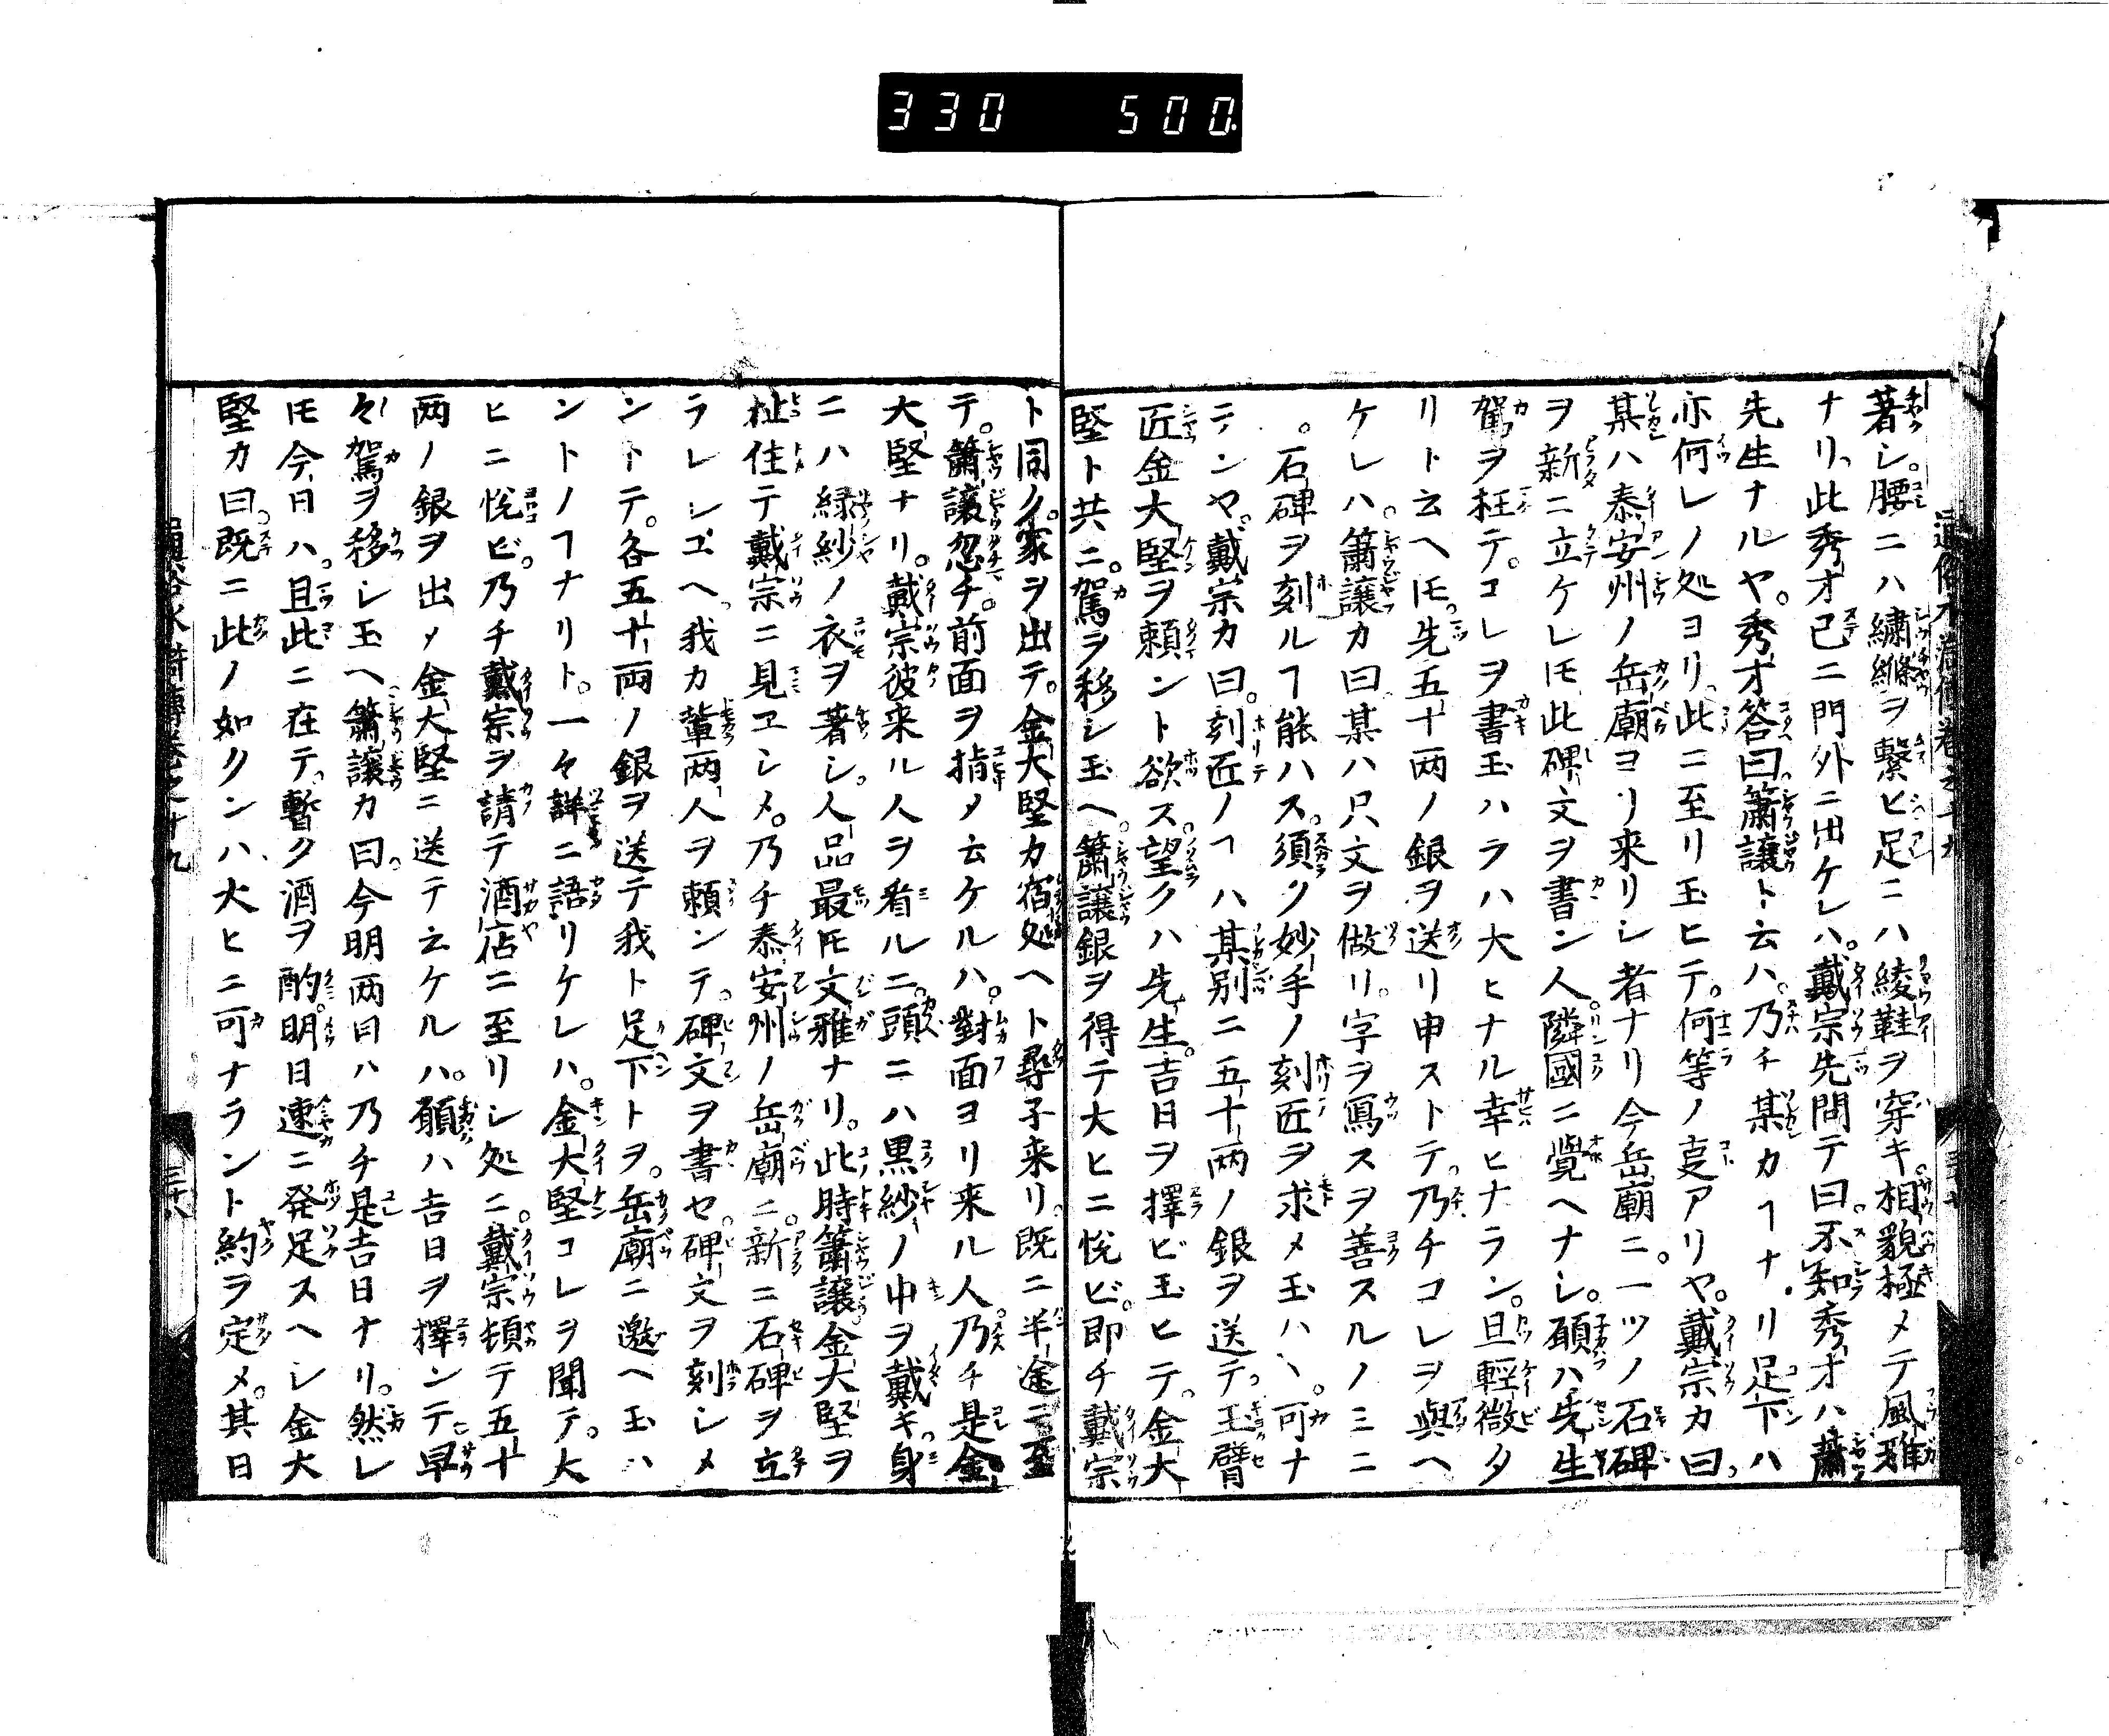 330 500.
著シ。腰ニハ繍縧ヲ繋ヒ足ニハ綾鞋ヲ穿キ。相貌極メテ風雅
ナリ。此秀才已ニ門外ニ出ケレハ。戴宗先問テ曰。不知秀才ハ蕭
先生ナルヤ。秀才答曰。蕭譲ト云ハ。乃チ某カヿナリ足下ハ
亦何レノ処ヨリ此ニ至リ玉ヒテ。何等ノ叓アリヤ。戴宗カ曰
某ハ泰安州ノ岳廟ヨリ来リシ者ナリ今岳廟ニ。一ツノ石碑
ヲ新ニ立ケレ𪜈此碑文ヲ書ン人。隣國ニ覺ヘナシ。願ハ先生
駕ヲ枉テ。コレヲ書玉ハラハ大ヒナル幸ヒナラン。且軽微タ
リト云ヘ𪜈。先五十両ノ銀ヲ送リ申ストテ。乃チコレヲ與ヘ
ケレハ。蕭譲カ曰某ハ只文ヲ做リ。字ヲ寫スヲ善スルノミニ
。石碑ヲ刻ルヿ能ハス。須ク妙手ノ刻匠ヲ求メ玉ハヽ。可ナ
ランヤ。戴宗カ曰。刻匠ノヿハ某別ニ五十両ノ銀ヲ送テ。玉臂
匠金大堅ヲ頼ント欲ス。望クハ先生。吉日ヲ擇ビ玉ヒテ。金大
堅ト共ニ。駕ヲ移シ玉ヘ。蕭譲銀ヲ得テ大ヒニ悦ビ。即チ戴宗
ト同ク。家ヲ出テ。金大堅カ宿処ヘト尋子来リ。既ニ半途ニ至
テ。蕭譲忽チ。前面ヲ指メ云ケルハ。對面ヨリ来ル人。乃チ是金
大堅ナリ。戴宗彼来ル人ヲ看ルニ。頭ニハ黒紗ノ巾ヲ戴キ。身
ニハ緑紗ノ衣ヲ著シ。人品最𪜈文雅ナリ。此時蕭譲。金大堅ヲ
扯住テ戴宗ニ見ヱシメ。乃チ泰安州ノ岳廟ニ。新ニ石碑ヲ立
ラレシユヘ。我カ輩両人ヲ頼ンテ。碑文ヲ書セ。碑文ヲ刻シメ
ントテ。各五十両ノ銀ヲ送テ我ト足下トヲ。岳廟ニ邀ヘ玉ハ
ントノヿナリト。一々詳ニ語リケレハ。金大堅コレヲ聞テ。大
ヒニ悦ビ。乃チ戴宗ヲ請テ酒店ニ至リシ処ニ。戴宗頓テ五十
両ノ銀ヲ出メ金大堅ニ送テ云ケルハ。願ハ吉日ヲ擇ンテ早
々駕ヲ移シ玉ヘ蕭譲カ曰。今明両日ハ乃チ是吉日ナリ。然レ
𪜈今日ハ。且此ニ在テ。暫ク酒ヲ酌。明日速ニ発足スヘシ金大
堅カ曰。既ニ此ノ如クンハ大ヒニ可ナラント約ヲ定メ。其日